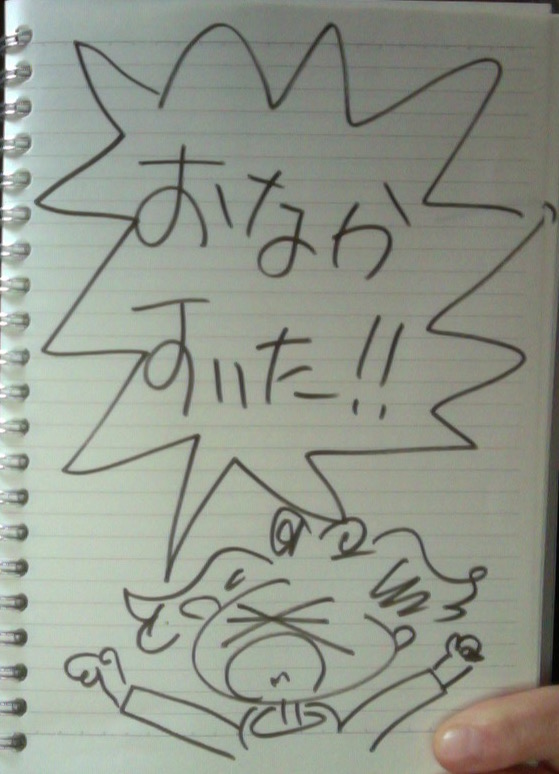 おなか
すいた!!